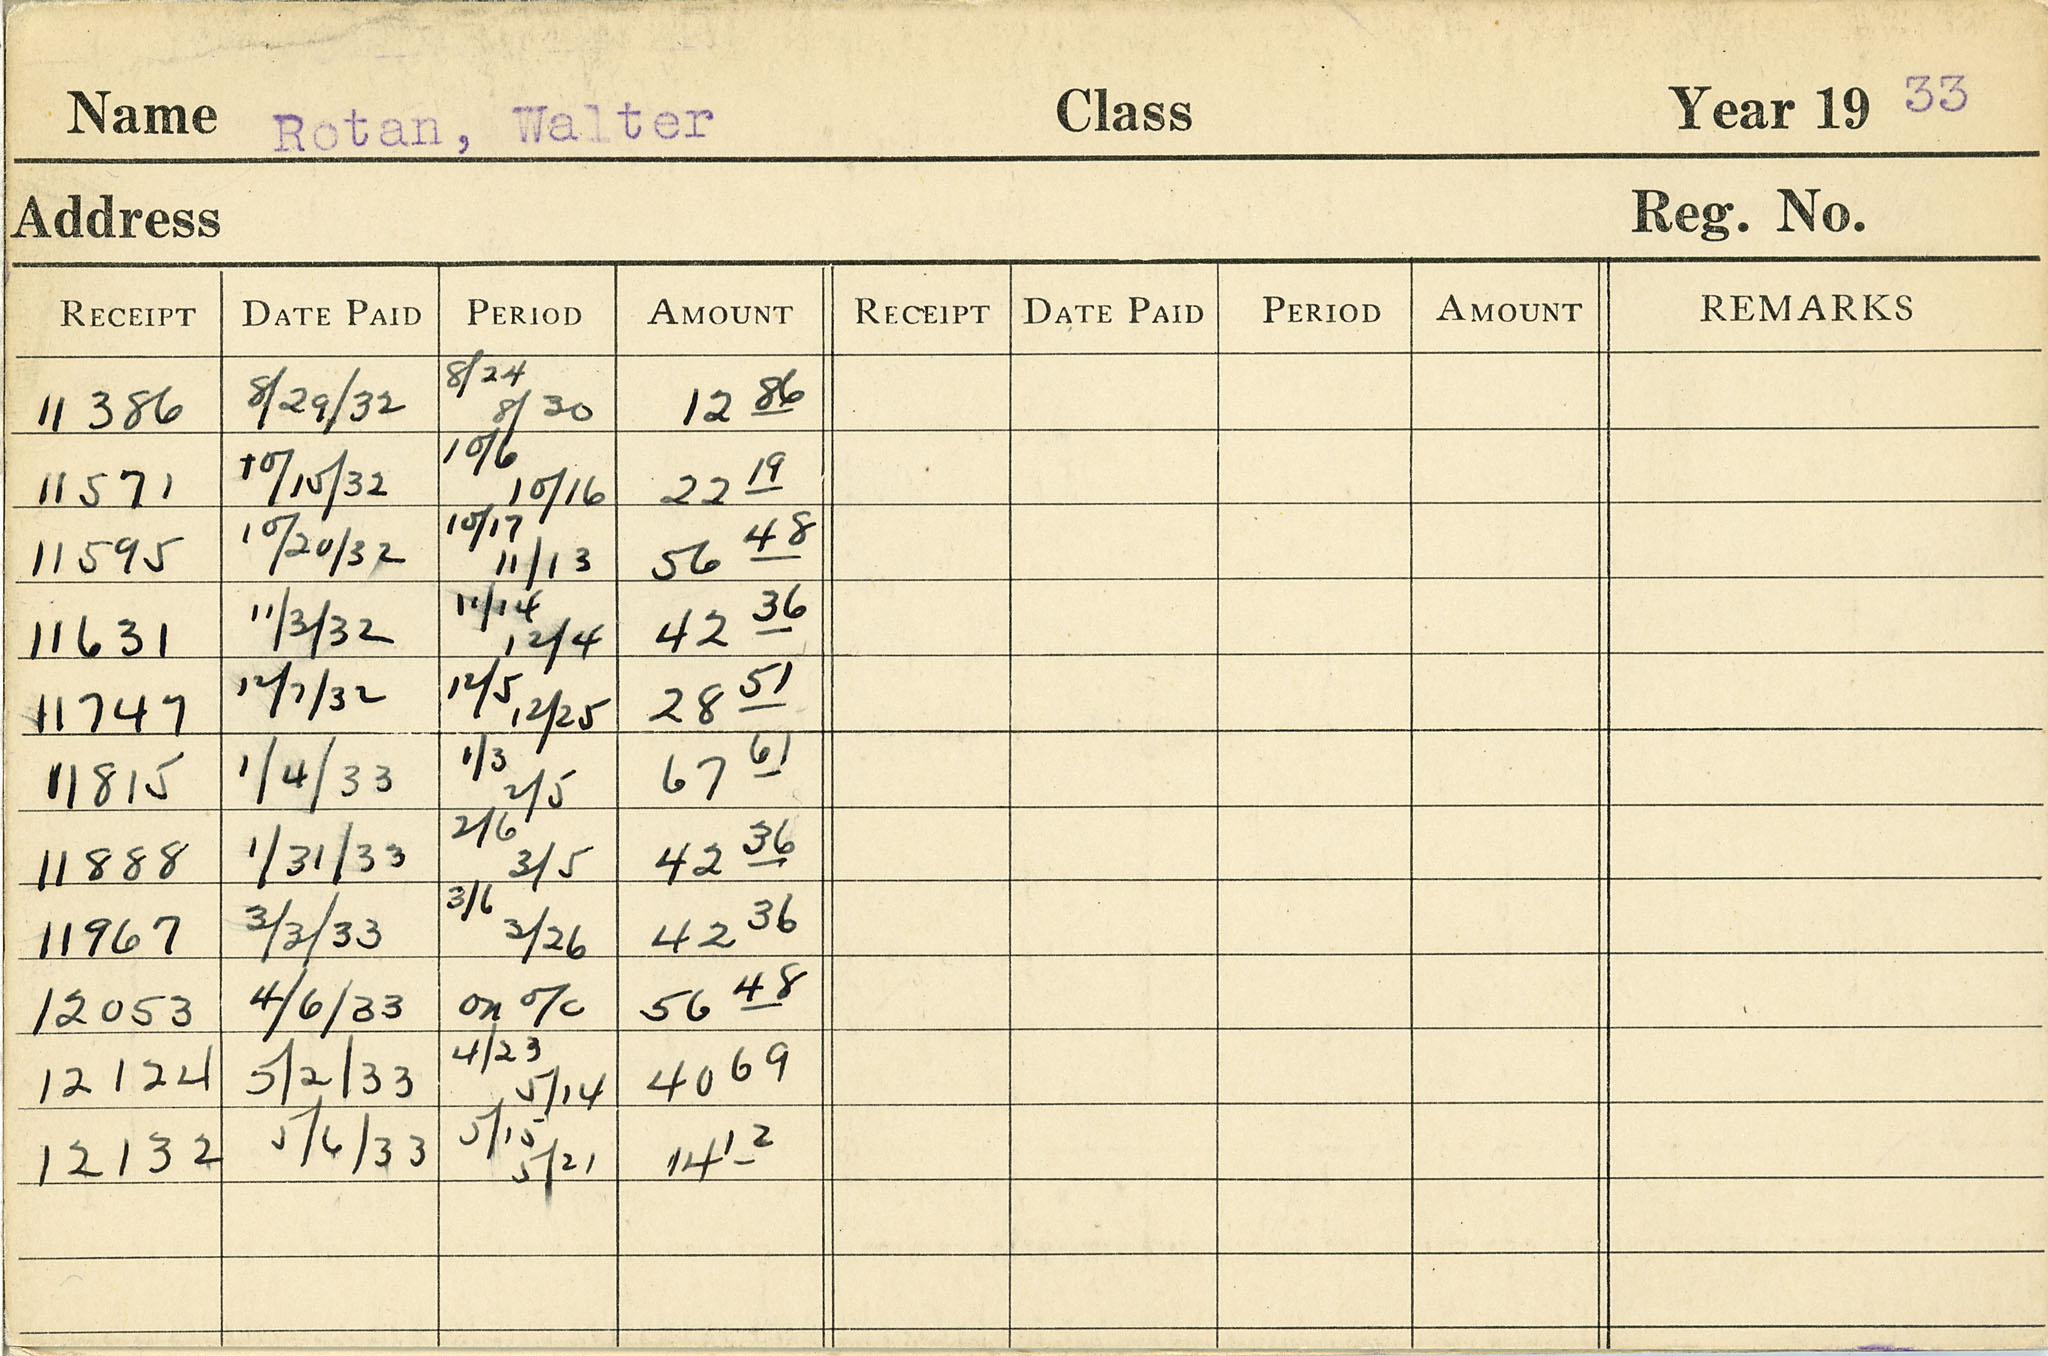 Name Rotan, Walter Class Year 19 33
Address Reg. No.
RECEIPT DATE PAID PERIOD AMOUNT RECEIPT DATE PAID PERIOD AMOUNT REMARKS
11386 8/29/32 8/24 8/30 12 86
11571 10/15/32 10/6 10/16 22 19
11595 10/20/32 10/17 11/13 56 48
11631 11/3/32 11/14 12/4 42 36
11747 12/7/32 12/5 12/25 28 51
11815 1/4/33 1/3 2/5 67 61
11888 1/31/33 2/6 3/5 42 36
11967 3/3/33 3/6 3/26 42 36
12053 4/6/33 on o/c 56 48
12124 5/2/33 4/23 5/14 40 69
12132 5/6/33 5/15 5/21 14 12